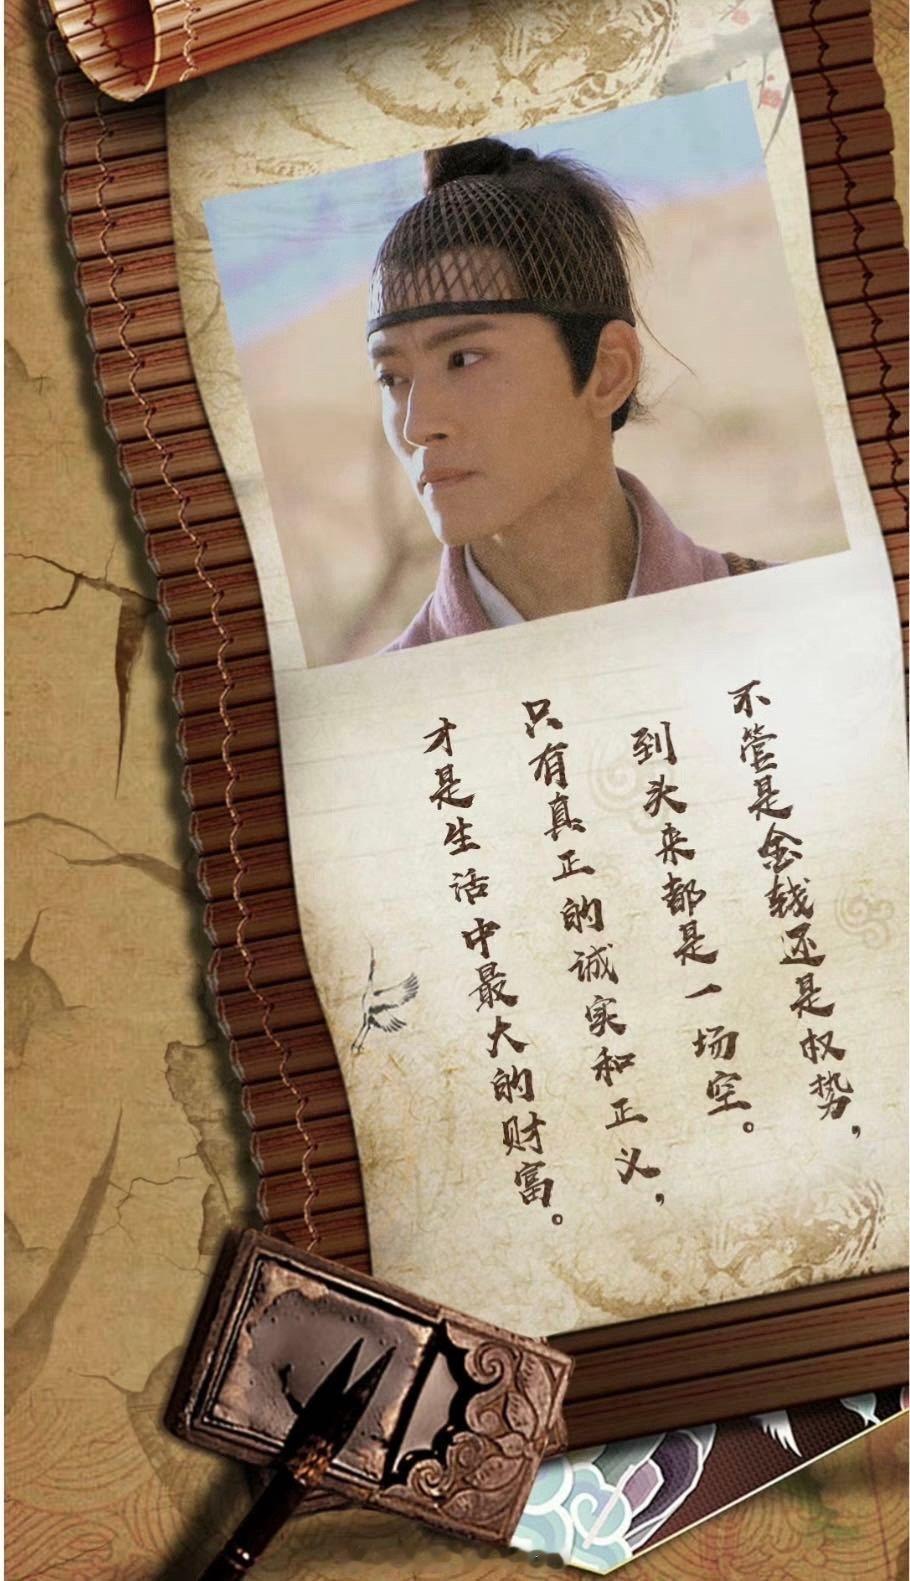 不管是金钱还是权势，
到头来都是一场空。
只有真正的诚实和正义，
才是生活中最大的财富。